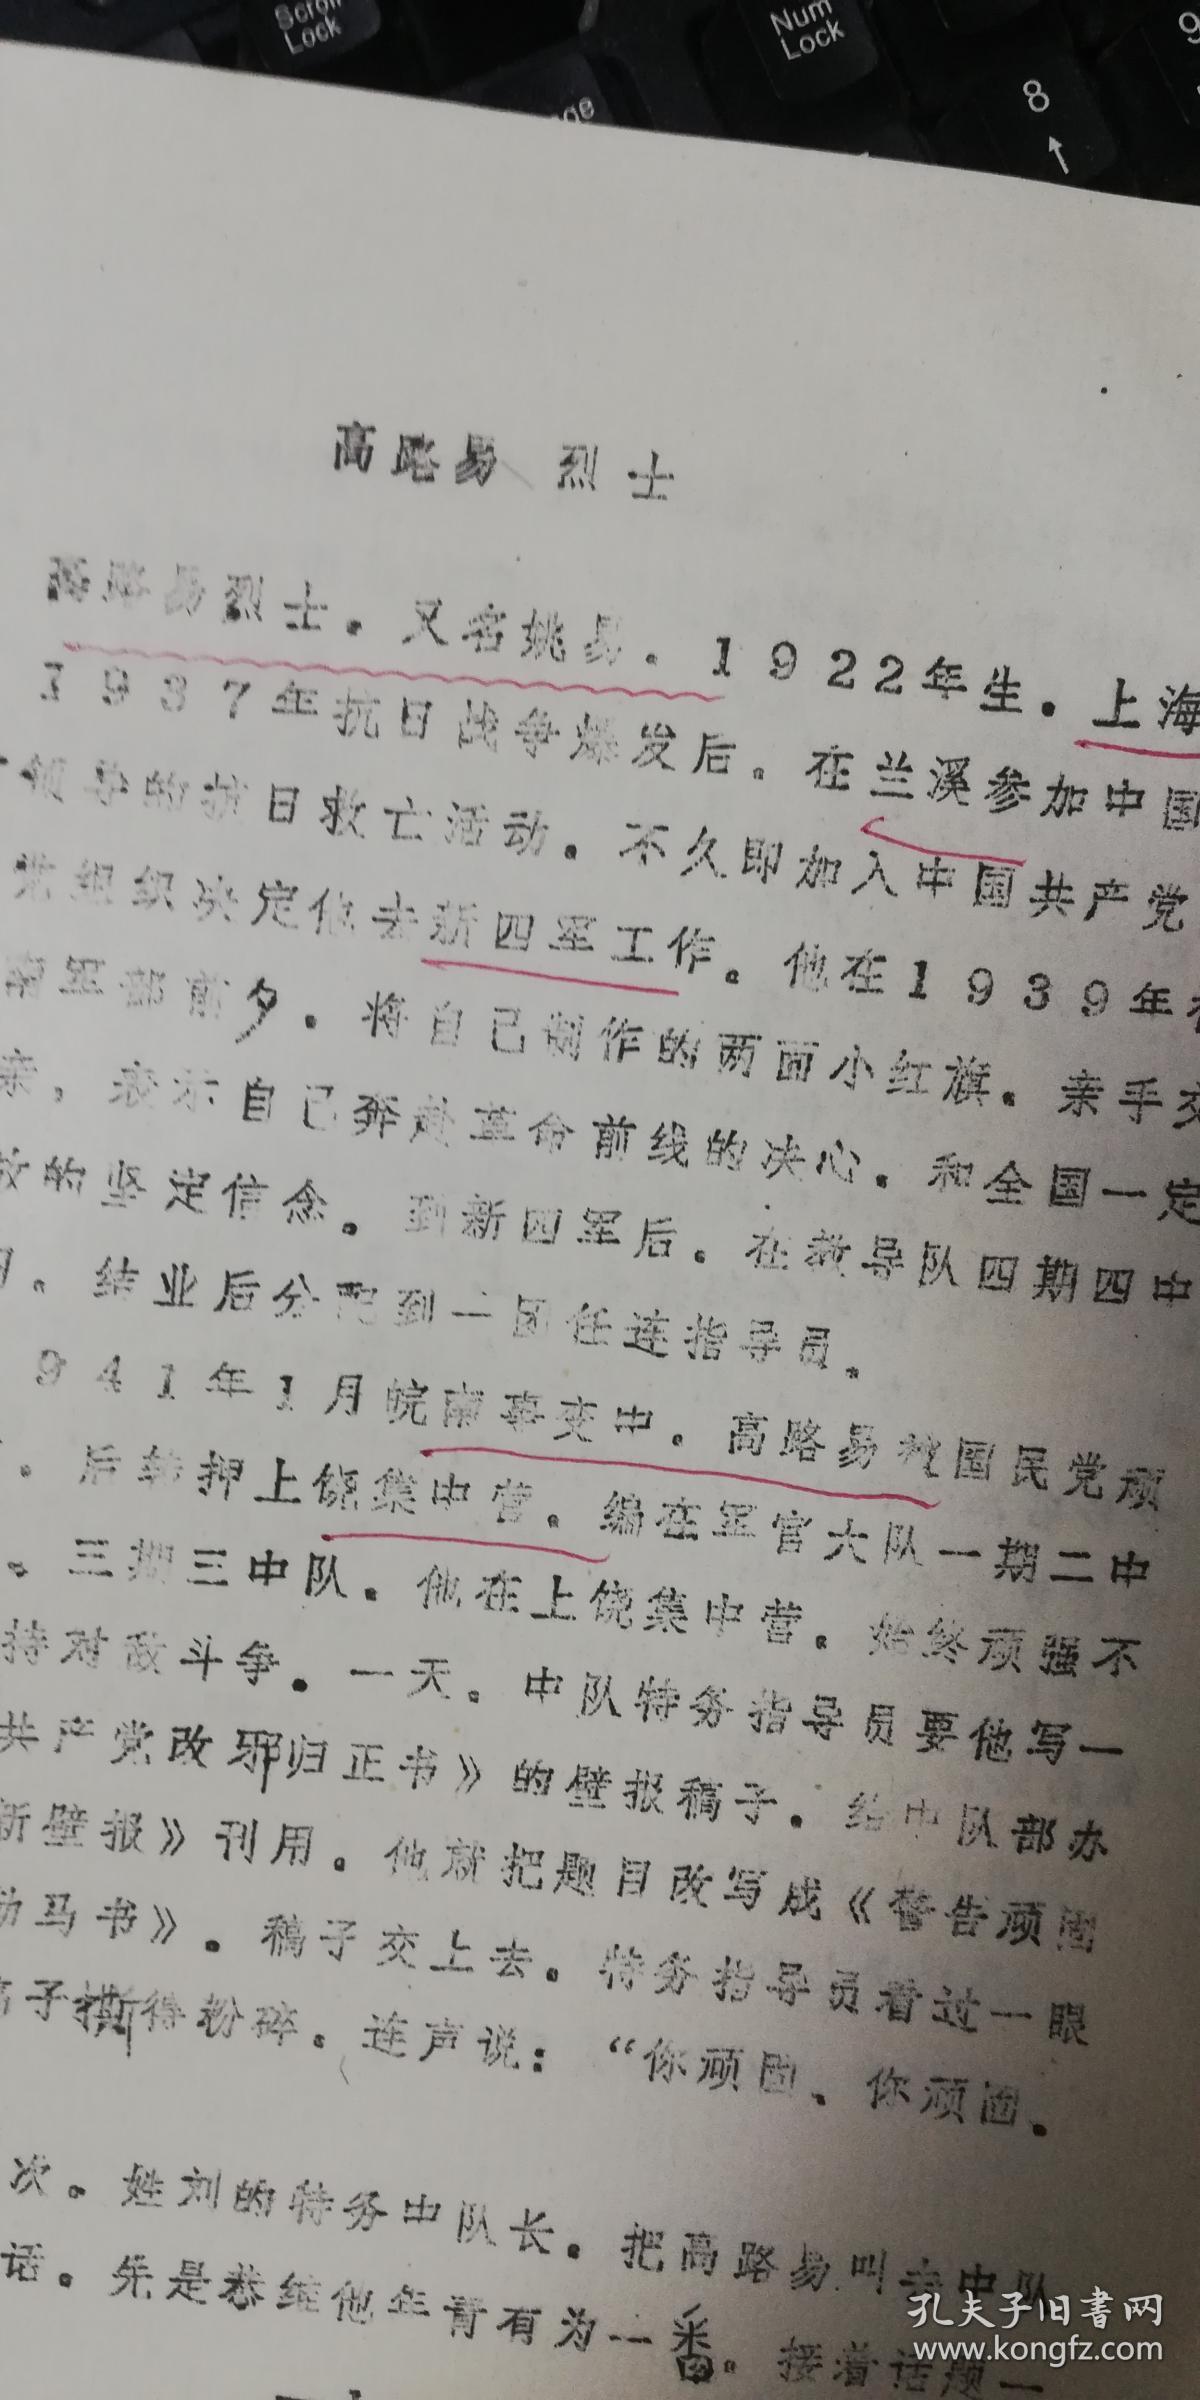 Scroll
Lock
Num
Lock
9
8
高路易 烈士
高路易烈士。又名姚易。1922年生。上海
1937年抗日战争爆发后。在兰溪参加中国
领导的抗日救亡活动。不久即加入中国共产党
党组织决定他去新四军工作。他在1939年
南军部前夕。将自己制作的两面小红旗。亲手交
亲，表示自己奔赴革命前线的决心。和全国一定
放的坚定信念。到新四军后。在教导队四期四中
。结业后分配到一团任连指导员。
941年1月皖南事变中。高路易被国民党顽
。后转押上饶集中营。编在军官大队一期二中
。三期三中队。他在上饶集中营。始终顽强不
持对敌斗争。一天。中队特务指导员要他写一
共产党改邪归正书》的壁报稿子。给中队部办
新壁报》刊用。他就把题目改写成《警告顽固
勒马书》。稿子交上去。特务指导员看过一眼
稿子撕得粉碎。连声说：“你顽固、你顽固。
次。姓刘的特务中队长。把高路易叫去中队
话。先是恭维他年青有为一番。接着话题一
孔夫子旧书网
www.kongfz.com